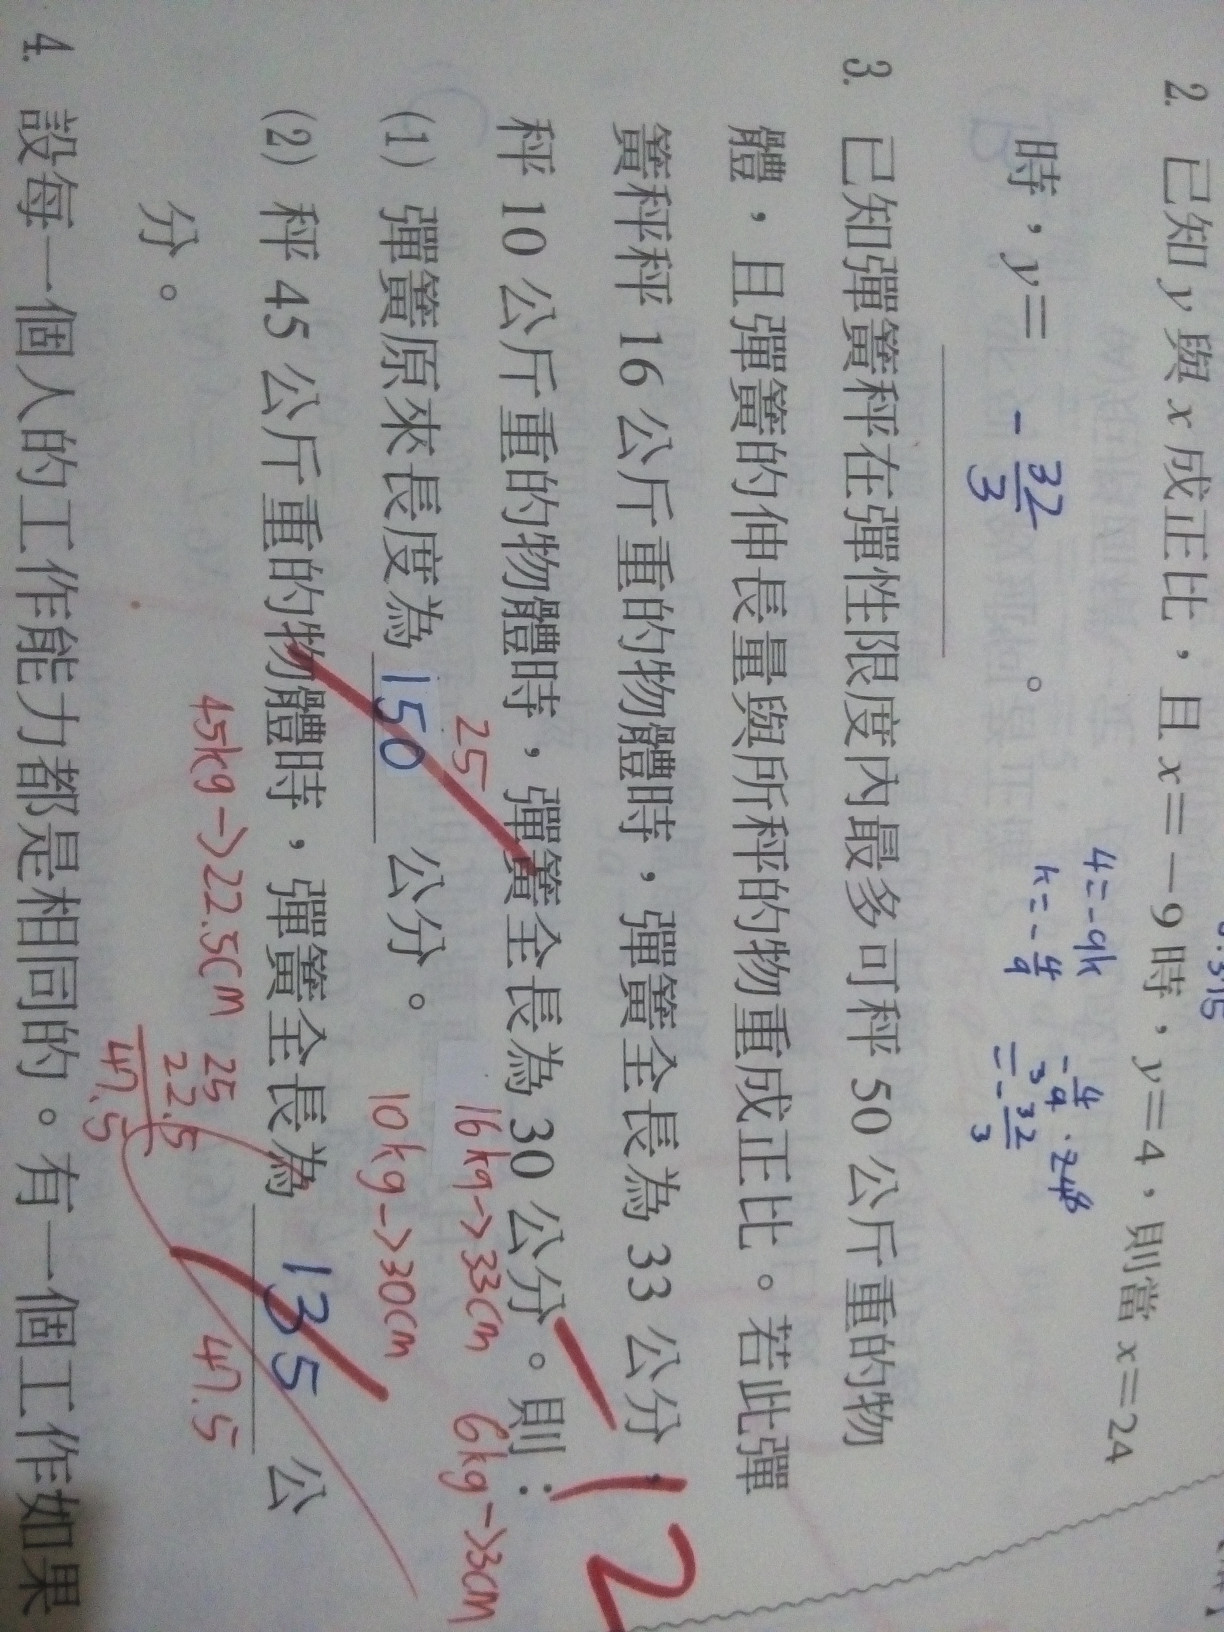 2. 已知 y 與 x 成正比，且 x＝－9 時，y＝4，則當 x＝24
時，y＝ - 32/3 。
4=-9k
k=-4/9
-4/9·24 8
3
=-32/3
3. 已知彈簧秤在彈性限度內最多可秤 50 公斤重的物
體，且彈簧的伸長量與所秤的物重成正比。若此彈
簧秤秤 16 公斤重的物體時，彈簧全長為 33 公分，
秤 10 公斤重的物體時，彈簧全長為 30 公分。則：
-12
25
16kg->33cm 6kg->3cm
(1) 彈簧原來長度為 150 公分。
10kg->30cm
(2) 秤 45 公斤重的物體時，彈簧全長為 135 公
分。
45kg->22.5cm
25
22.5
47.5
47.5
4. 設每一個人的工作能力都是相同的。有一個工作如果